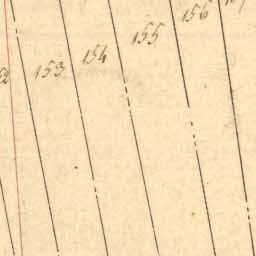 153 154 155 156